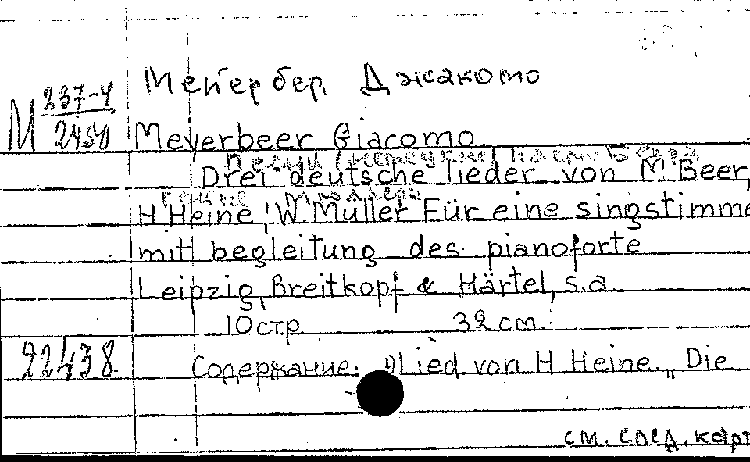 Мейербер Джакомо
М 237-4/2450
Meyerbeer Giacomo
Drei deutsche lieder von M. Beer,
H Heine, W. Müller Für eine singstimme
mit begleitung des pianoforte
Leipzig, Breitkopf & Härtel, s.a.
10 стр 32 cm.
22438
Содержание: 1) Lied von H Heine. „Die
см. след. карт